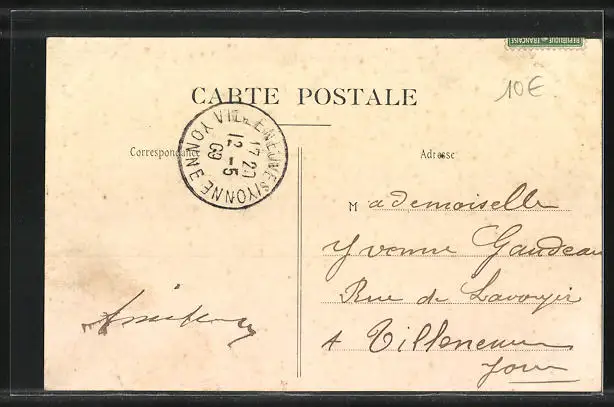 REPUBLIQUE FRANÇAISE
10€
CARTE POSTALE
VILLENEUVE S/YONNE YONNE
17 20
12 - 5
09
Correspondance
Adresse
Mademoiselle
Yvonne Gaudeau
Rue de
A Villeneuve